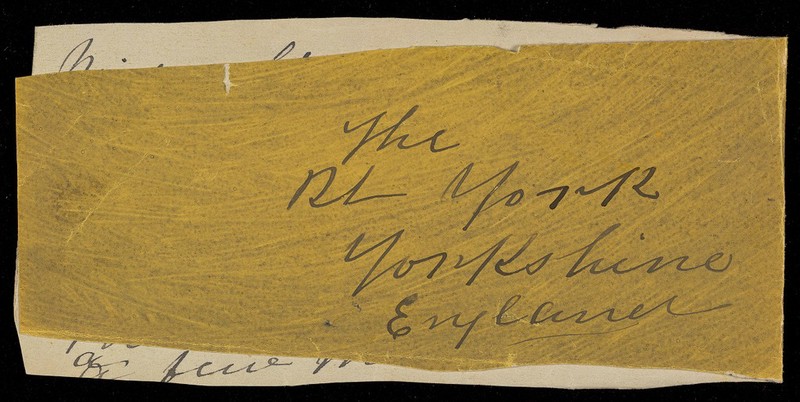 The
Rt York
Yorkshire
England
few